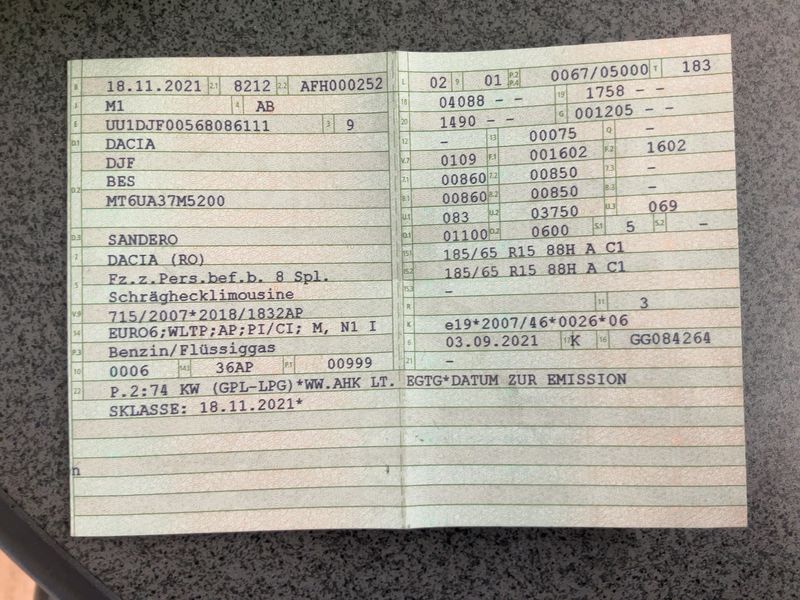 B 18.11.2021 2.1 8212 2.2 AFH000252
J M1 4 AB
E UU1DJF00568086111 3 9
D.1 DACIA
DJF
D.2 BES
MT6UA37M5200
D.3 SANDERO
2 DACIA (RO)
5 Fz.z.Pers.bef.b. 8 Spl.
Schräghecklimousine
V.9 715/2007*2018/1832AP
14 EURO6;WLTP;AP;PI/CI; M, N1 I
P.3 Benzin/Flüssiggas
10 0006 14.1 36AP P.1 00999
22 P.2:74 KW (GPL-LPG)*WW.AHK LT. EGTG*DATUM ZUR EMISSION
SKLASSE: 18.11.2021*
n
L 02 9 01 P.2 P.4 0067/05000 T 183
18 04088 - - 19 1758 - -
20 1490 - - G 001205 - -
12 - 13 00075 Q -
V.7 0109 F.1 001602 F.2 1602
7.1 00860 7.2 00850 7.3 -
8.1 00860 8.2 00850 8.3 -
U.1 083 U.2 03750 U.3 069
O.1 01100 O.2 0600 S.1 5 S.2 -
15.1 185/65 R15 88H A C1
15.2 185/65 R15 88H A C1
15.3 -
R 11 3
K e19*2007/46*0026*06
6 03.09.2021 17 K 16 GG084264
21 -